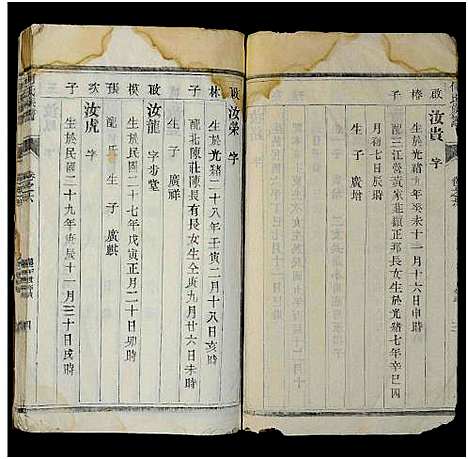 啟椿 汝貴 字
生於光緒九年癸未十一月十六日申時
配三江營黃家莊顧正邦長女生於光緒七年辛巳四
月初七日辰時
子 廣增
啟林 汝榮 字
生於光緒二十八年壬寅二月十八日亥時
配北陳莊陳長有長女生全庚九月廿六日未時
子 廣祥
啟模 汝龍 字步堂
生於民國二十七年戊寅正月二十日卯時
張 配 氏 生 子 廣麒
次子 汝虎 字
生於民國二十九年庚辰十一月三十日戌時